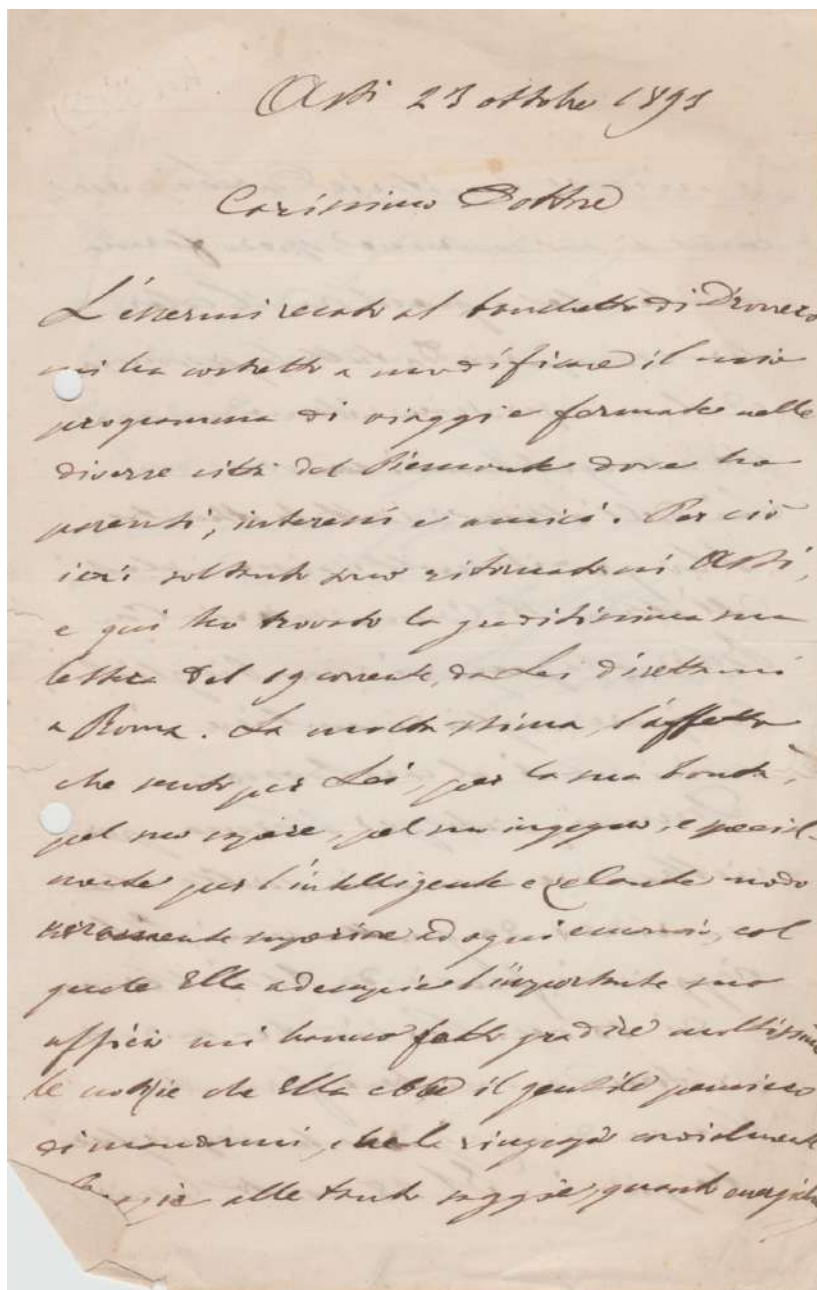 Asti 23 ottobre 1893
Carissimo Dottore
L'essermi recato al banchetto di Dronero
mi ha costretto a modificare il mio
programma di viaggi e fermate nelle
diverse città del Piemonte dove ho
parenti, interessi e amici. Per ciò
ieri soltanto sono ritornato in Asti,
e qui ho trovato la graditissima sua
lettera del 19 corrente, da Lei direttami
a Roma. La molta stima, l'affetto
che sento per Lei, per la sua bontà,
pel suo sapere, pel suo ingegno, e special-
mente per l'intelligente e zelante modo
superiore ad ogni encomio, col
quale Ella adempie l'importante suo
ufficio mi hanno fatto gradire moltissimo
le notizie che Ella ebbe il gentile pensiero
di mandarmi, e la ringrazio cordialmente
alle tanto saggie, quanto energiche